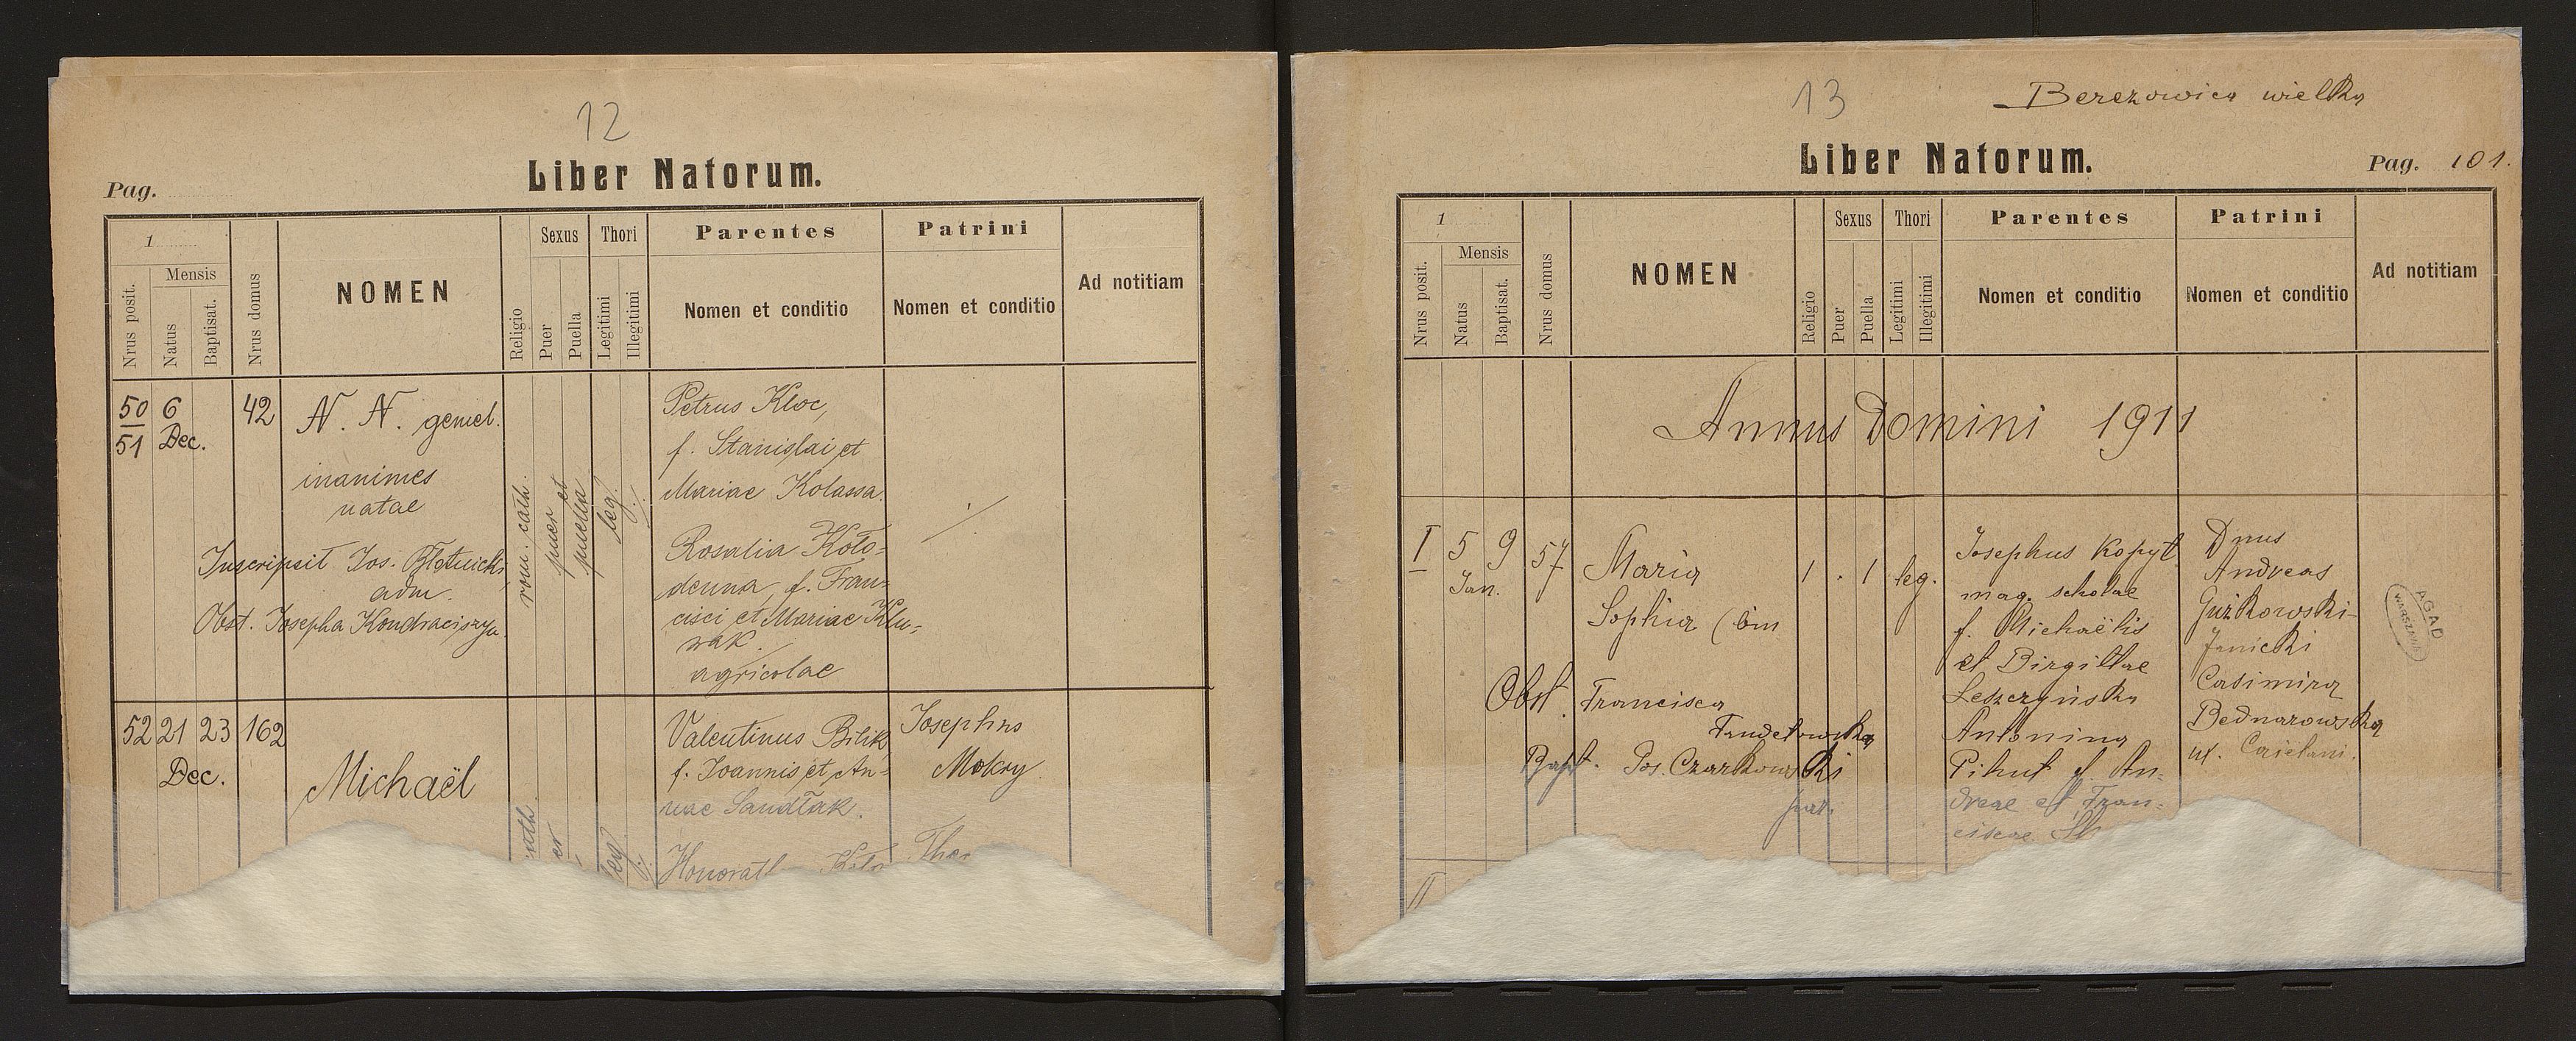 12
Liber Natorum.
Pag.
1
Nrus posit.
Mensis
Natus
Baptisat.
Nrus domus
NOMEN
Religio
Sexus
Puer
Puella
Thori
Legitimi
Illegitimi
Parentes
Nomen et conditio
Patrini
Nomen et conditio
Ad notitiam
50
51
6
Dec.
42
N. N. gemel.
inanimes
natae
Inscripsit Jos.
adm.
Obst. Josepha
rom. cath.
puer et
puella
leg.
Petrus Kloc,
f. Stanislai et
Mariae Kolassa.
Rosalia Koło=
dcunna, f. Fran=
cisci et Mariae Klu=
wak.
agricolae
52
21
23
Dec.
162
Michaël
cath.
er
leg.
Valentinus Bilik
f. Joannis et An=
nae Sandłak.
Josephus
Mokry
13
Berezowica wielka
Liber Natorum.
Pag. 101.
1
Nrus posit.
Mensis
Natus
Baptisat.
Nrus domus
NOMEN
Religio
Sexus
Puer
Puella
Thori
Legitimi
Illegitimi
Parentes
Nomen et conditio
Patrini
Nomen et conditio
Ad notitiam
Annus Domini 1911
I
5
9
Jan.
57
Maria
Sophia (bin
Obst. Francisca
Bapt. Jos. Czarkowski
1 . 1 leg.
Josephus Kopyt
mag. scholae
f. Michaëlis
et Birgittae
Leszczyńska
Antonina
Pihut f. An=
dreae et Fran=
ciscae
Dnus
Andreas
Guzkowski-
Janicki
Casimira
Bednarowska
ux. Cajetani.
AGAD
WARSZAWA